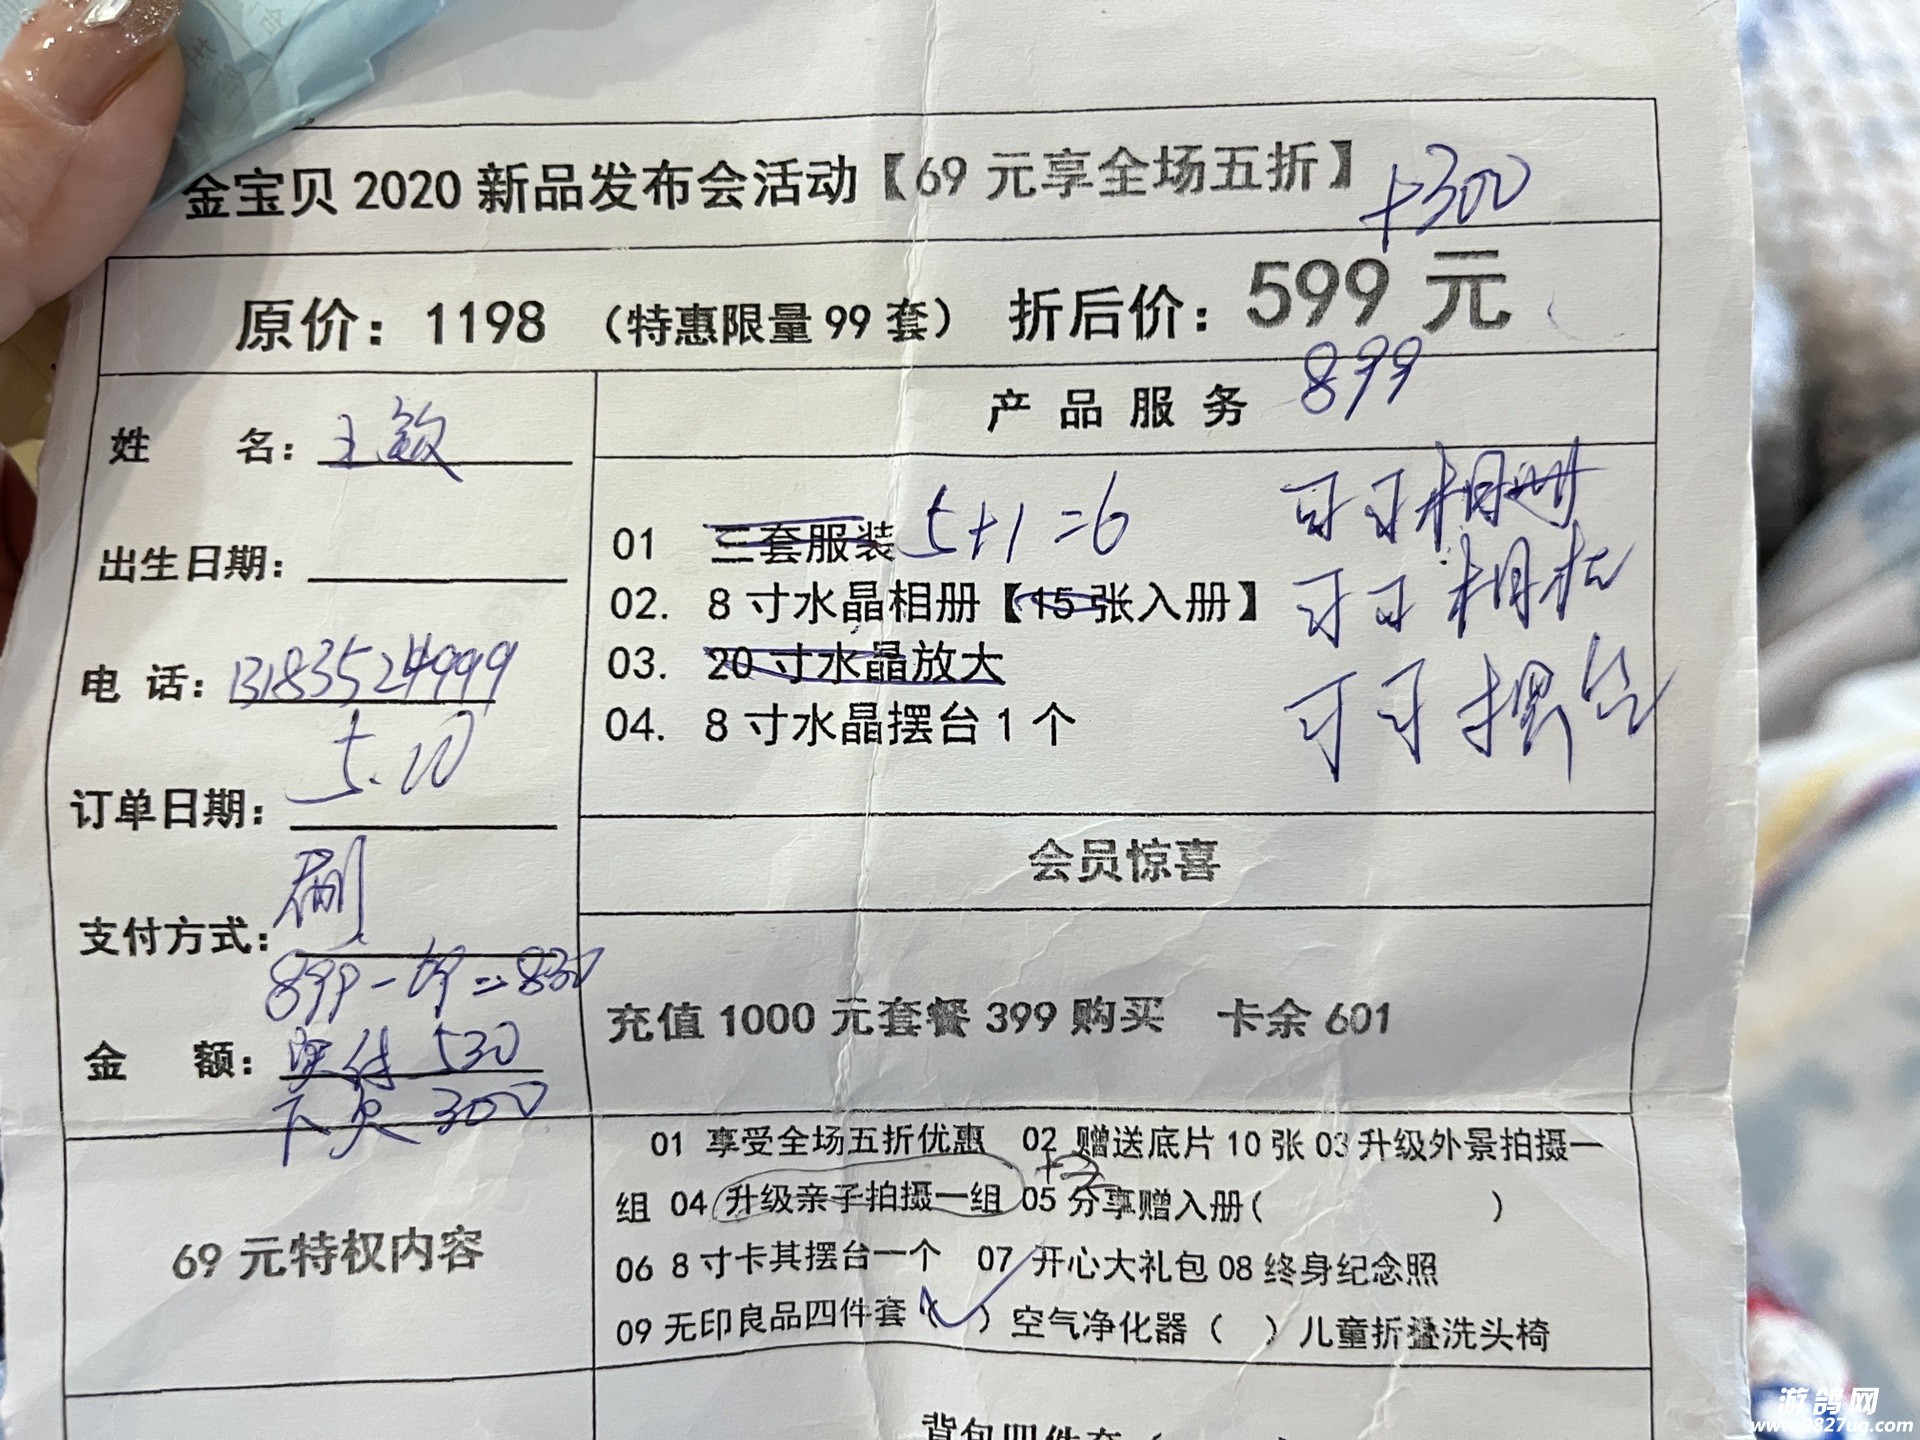 金宝贝 2020 新品发布会活动【69 元享全场五折】
+300
原价：1198 （特惠限量 99 套） 折后价：599 元
899
姓 名：王敏
出生日期：
电 话：13183524999
订单日期：5.10
支付方式：刷
899-69=830
金 额：实付 530
卡欠 300
产品服务
01 三套服装 5+1=6
02. 8 寸水晶相册【15 张入册】
03. 20 寸水晶放大
04. 8 寸水晶摆台 1 个
可可相册
可可相框
可可摆台
会员惊喜
充值 1000 元套餐 399 购买 卡余 601
69 元特权内容
01 享受全场五折优惠 02 赠送底片 10 张 03 升级外景拍摄一
组 04 升级亲子拍摄一组 05 分享赠入册( )
06 8 寸卡其摆台一个 07 开心大礼包 08 终身纪念照
09 无印良品四件套（✓）空气净化器（ ）儿童折叠洗头椅
背包四件套（
游鸽网
www.0827ug.com